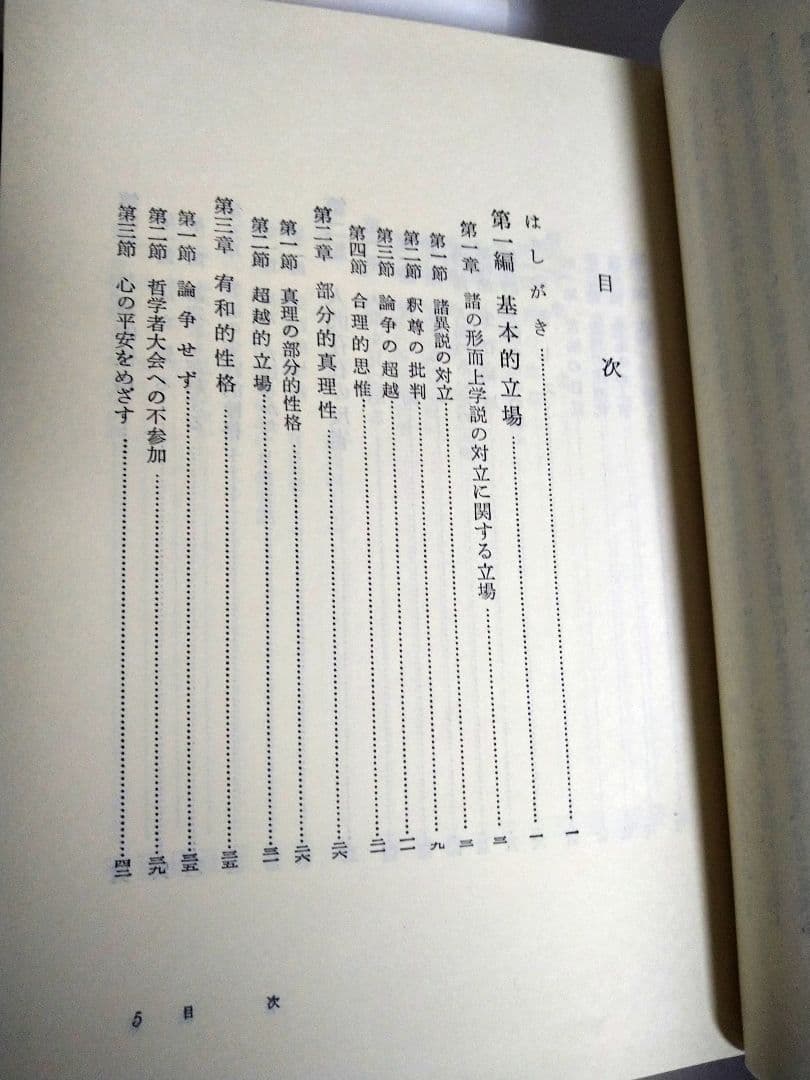 目次
はしがき……一
第一編 基本的立場……一
第一章 諸の形而上学説の対立に関する立場……三
第一節 諸異説の対立……三
第二節 釈尊の批判……九
第三節 論争の超越……一一
第四節 合理的思惟……二一
第二章 部分的真理性……二六
第一節 真理の部分的性格……二六
第二節 超越的立場……三一
第三章 宥和的性格……三五
第一節 論争せず……三五
第二節 哲学者大会への不参加……三九
第三節 心の平安をめざす……四二
5 目次